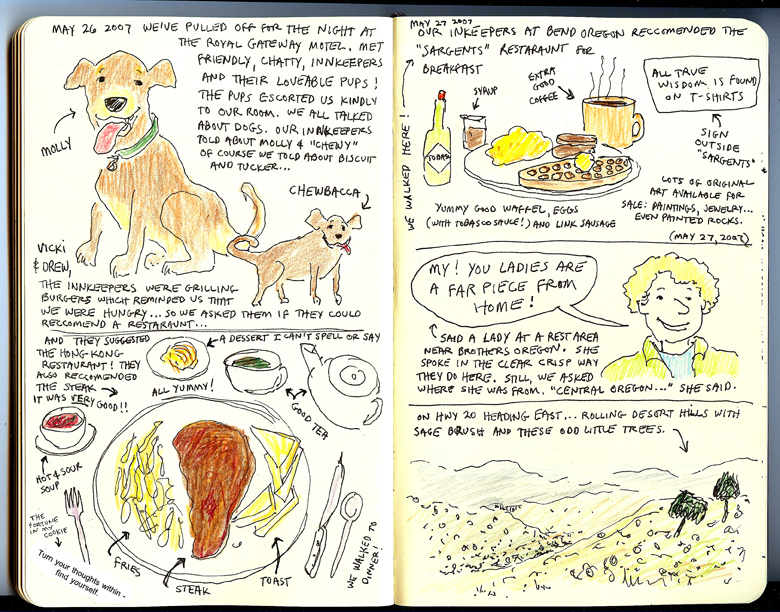 MAY 26 2007 WE'VE PULLED OFF FOR THE NIGHT AT
THE ROYAL GATEWAY MOTEL. MET
FRIENDLY, CHATTY, INNKEEPERS
AND THEIR LOVEABLE PUPS!
THE PUPS ESCORTED US KINDLY
TO OUR ROOM. WE ALL TALKED
ABOUT DOGS. OUR INNKEEPERS
TOLD ABOUT MOLLY & "CHEWY"
OF COURSE WE TOLD ABOUT BISCUIT
AND TUCKER...
MOLLY
CHEWBACCA
VICKI
& DREW,
THE INNKEEPERS WERE GRILLING
BURGERS WHICH REMINDED US THAT
WE WERE HUNGRY... SO WE ASKED THEM IF THEY COULD
RECCOMEND A RESTARAUNT...
AND THEY SUGGESTED
THE HONG-KONG
RESTAURANT! THEY
ALSO RECCOMENDED
THE STEAK
IT WAS VERY GOOD!!
A DESSERT I CAN'T SPELL OR SAY
ALL YUMMY!
GOOD TEA
HOT & SOUR
SOUP
THE
FORTUNE
IN MY
COOKIE
Turn your thoughts within -
find yourself.
FRIES
STEAK
TOAST
WE WALKED TO
DINNER!
MAY 27 2007
OUR INKEEPERS AT BEND OREGON RECCOMENDED THE
"SARGENTS" RESTARAUNT FOR
BREAKFAST
WE WALKED HERE!
SYRUP
EXTRA
GOOD
COFFEE
TOBASCO
ALL TRUE
WISDOM IS FOUND
ON T-SHIRTS
SIGN
OUTSIDE
"SARGENTS"
YUMMY GOOD WAFFEL, EGGS
(WITH TOBASCO SAUCE!) AND LINK SAUSAGE
LOTS OF ORIGINAL
ART AVAILABLE FOR
SALE: PAINTINGS, JEWELRY...
EVEN PAINTED ROCKS.
(MAY 27, 2007)
MY! YOU LADIES ARE
A FAR PIECE FROM
HOME!
SAID A LADY AT A REST AREA
NEAR BROTHERS OREGON. SHE
SPOKE IN THE CLEAR CRISP WAY
THEY DO HERE. STILL, WE ASKED
WHERE SHE WAS FROM. "CENTRAL OREGON..." SHE SAID.
ON HWY 20 HEADING EAST... ROLLING DESERT HILLS WITH
SAGE BRUSH AND THESE ODD LITTLE TREES.